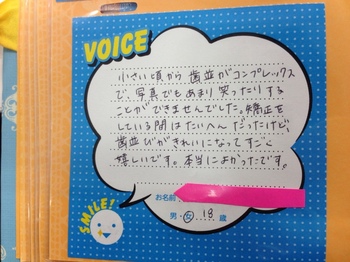 VOICE
小さい頃から歯並がコンプレックス
で、写真でもあまり笑ったりする
ことができませんでした。矯正を
している間はたいへんだったけど、
歯並びがきれいになってすごく
嬉しいです。本当によかったです。
お名前
男・女 18 歳
SMILE!